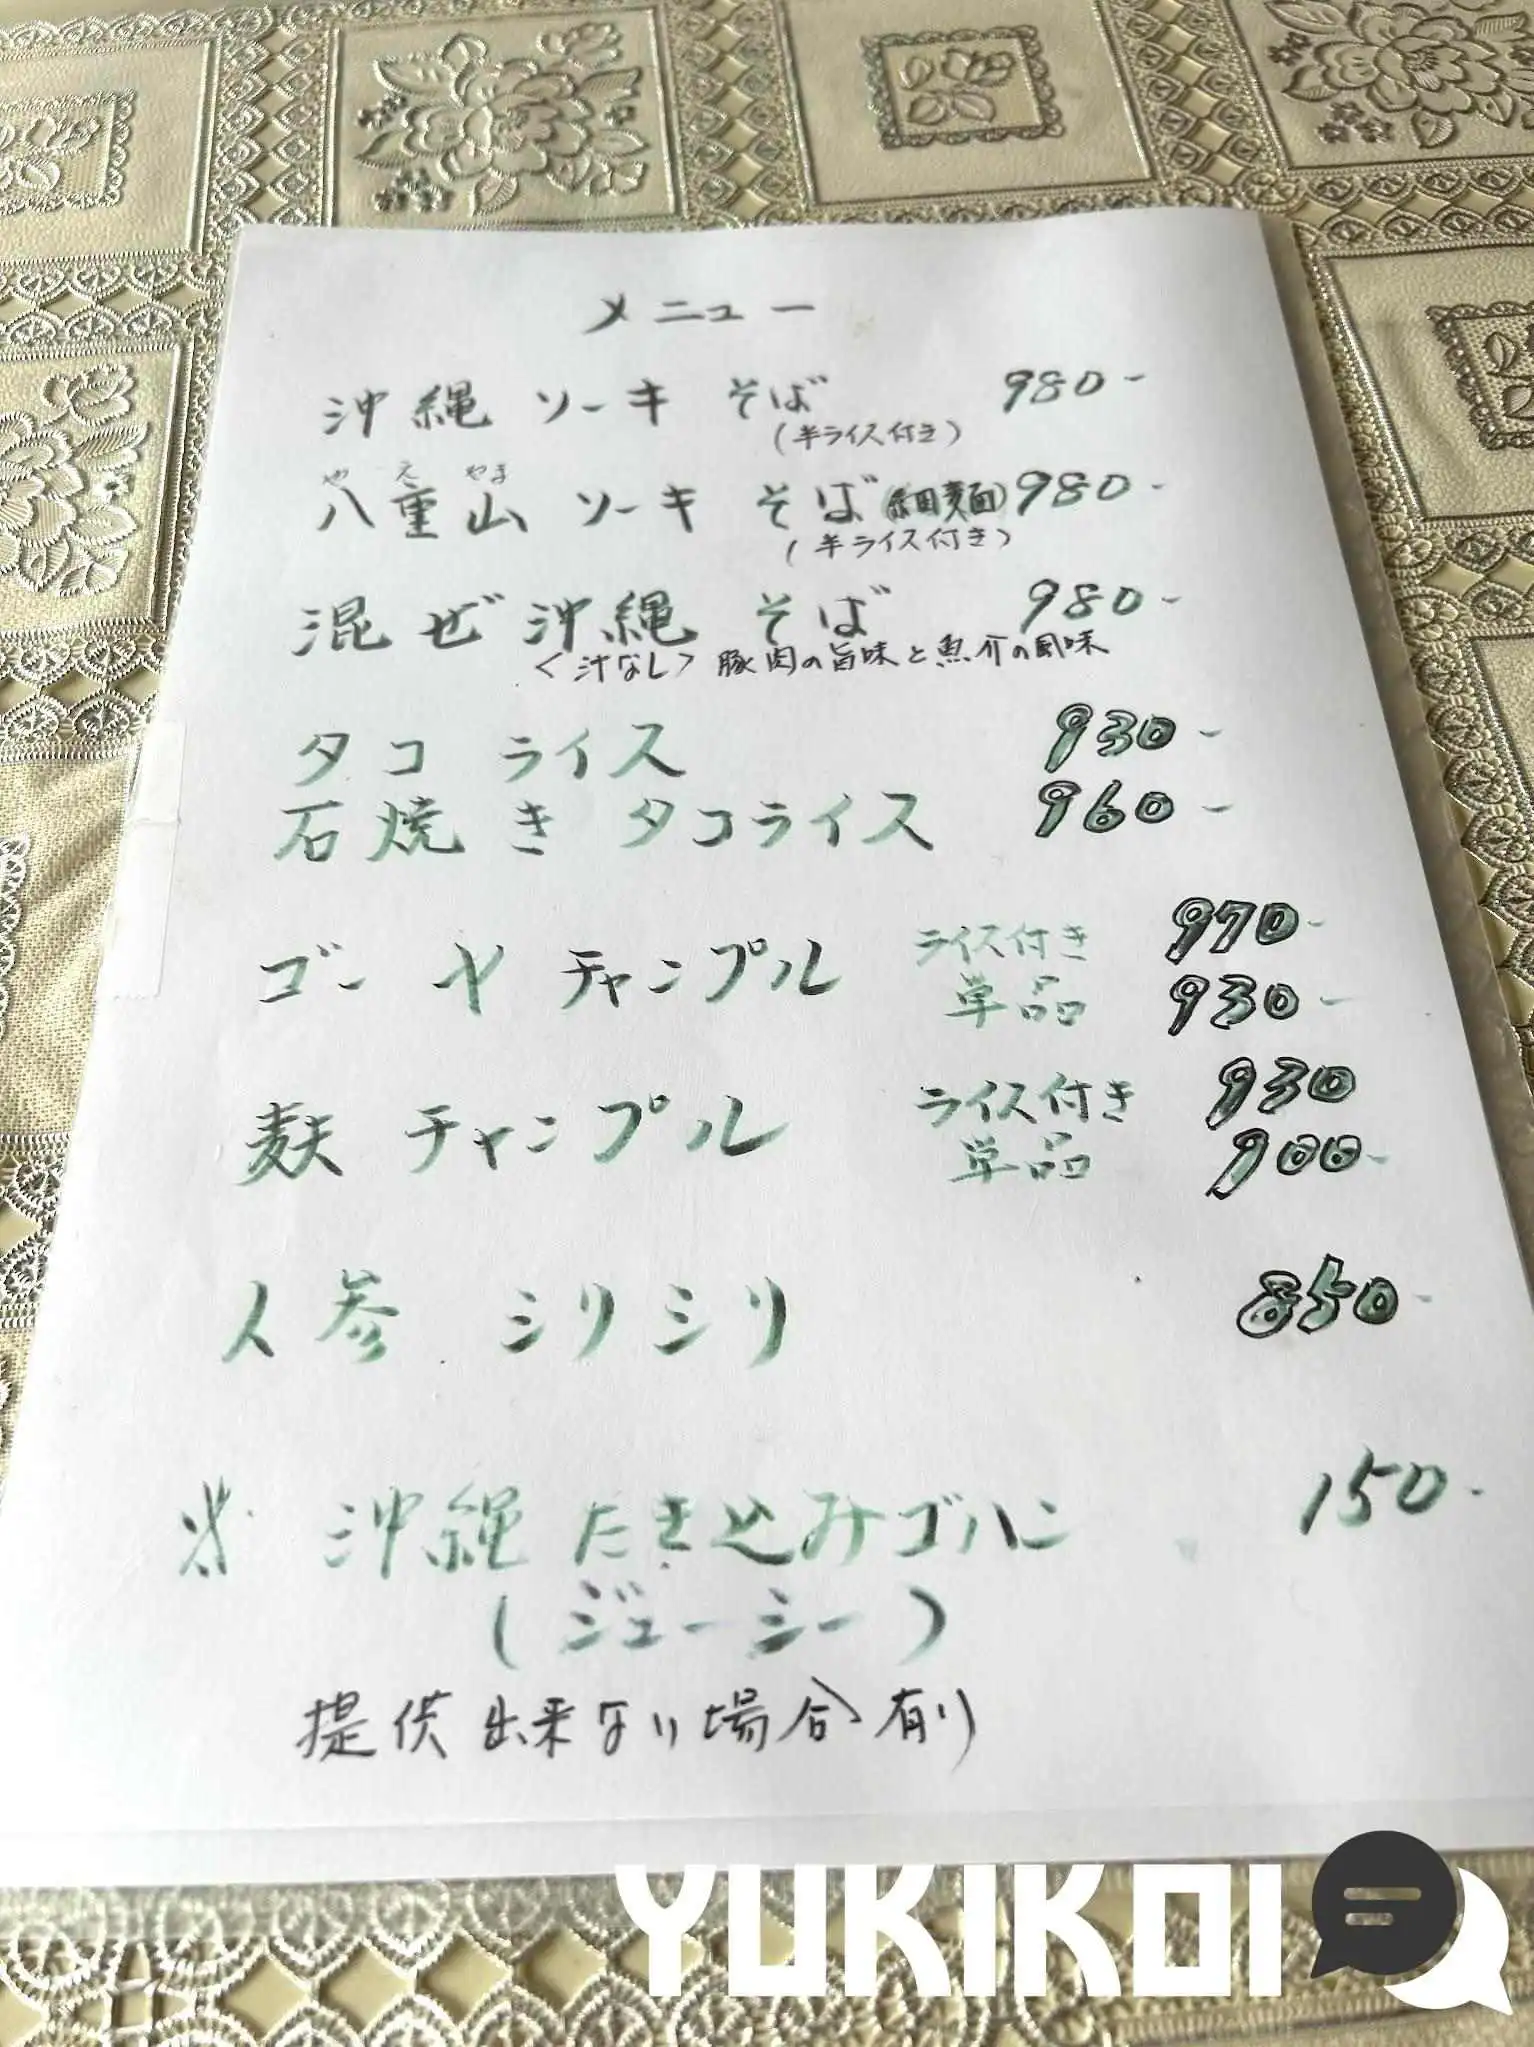 メニュー
沖縄 ソーキ そば 980-
(半ライス付き)
や え やま
八重山 ソーキ そば(細麺) 980-
(半ライス付き)
混ぜ沖縄 そば 980-
<汁なし> 豚肉の旨味と魚介の風味
タコ ライス 930-
石焼き タコライス 960-
ゴーヤ チャンプル ライス付き 970-
単品 930-
麩 チャンプル ライス付き 930
単品 900-
人参 シリシリ 850-
※ 沖縄 たき込みゴハン 150-
(ジューシー)
提供出来ない場合有り
YUKIKOI